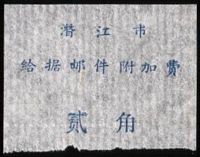 潜江市
给据邮件附加费
贰角